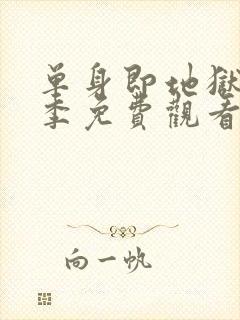 單身即地獄
季免費觀看
向一帆